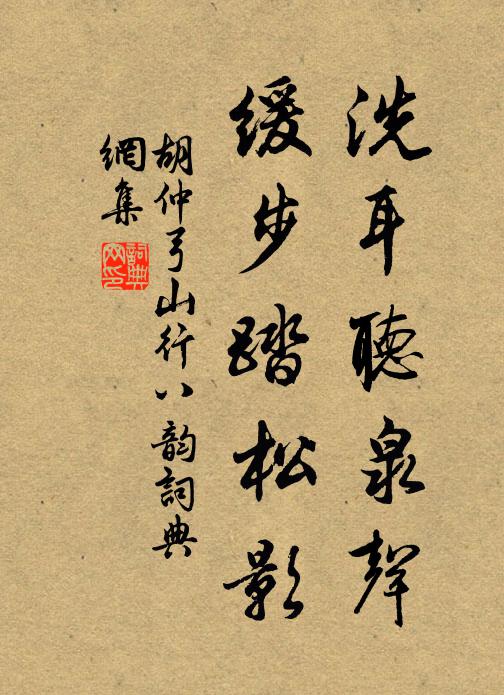 洗耳聽泉聲
緩步踏松影
胡仲弓山行八韵詞典
網集
詞典
网印